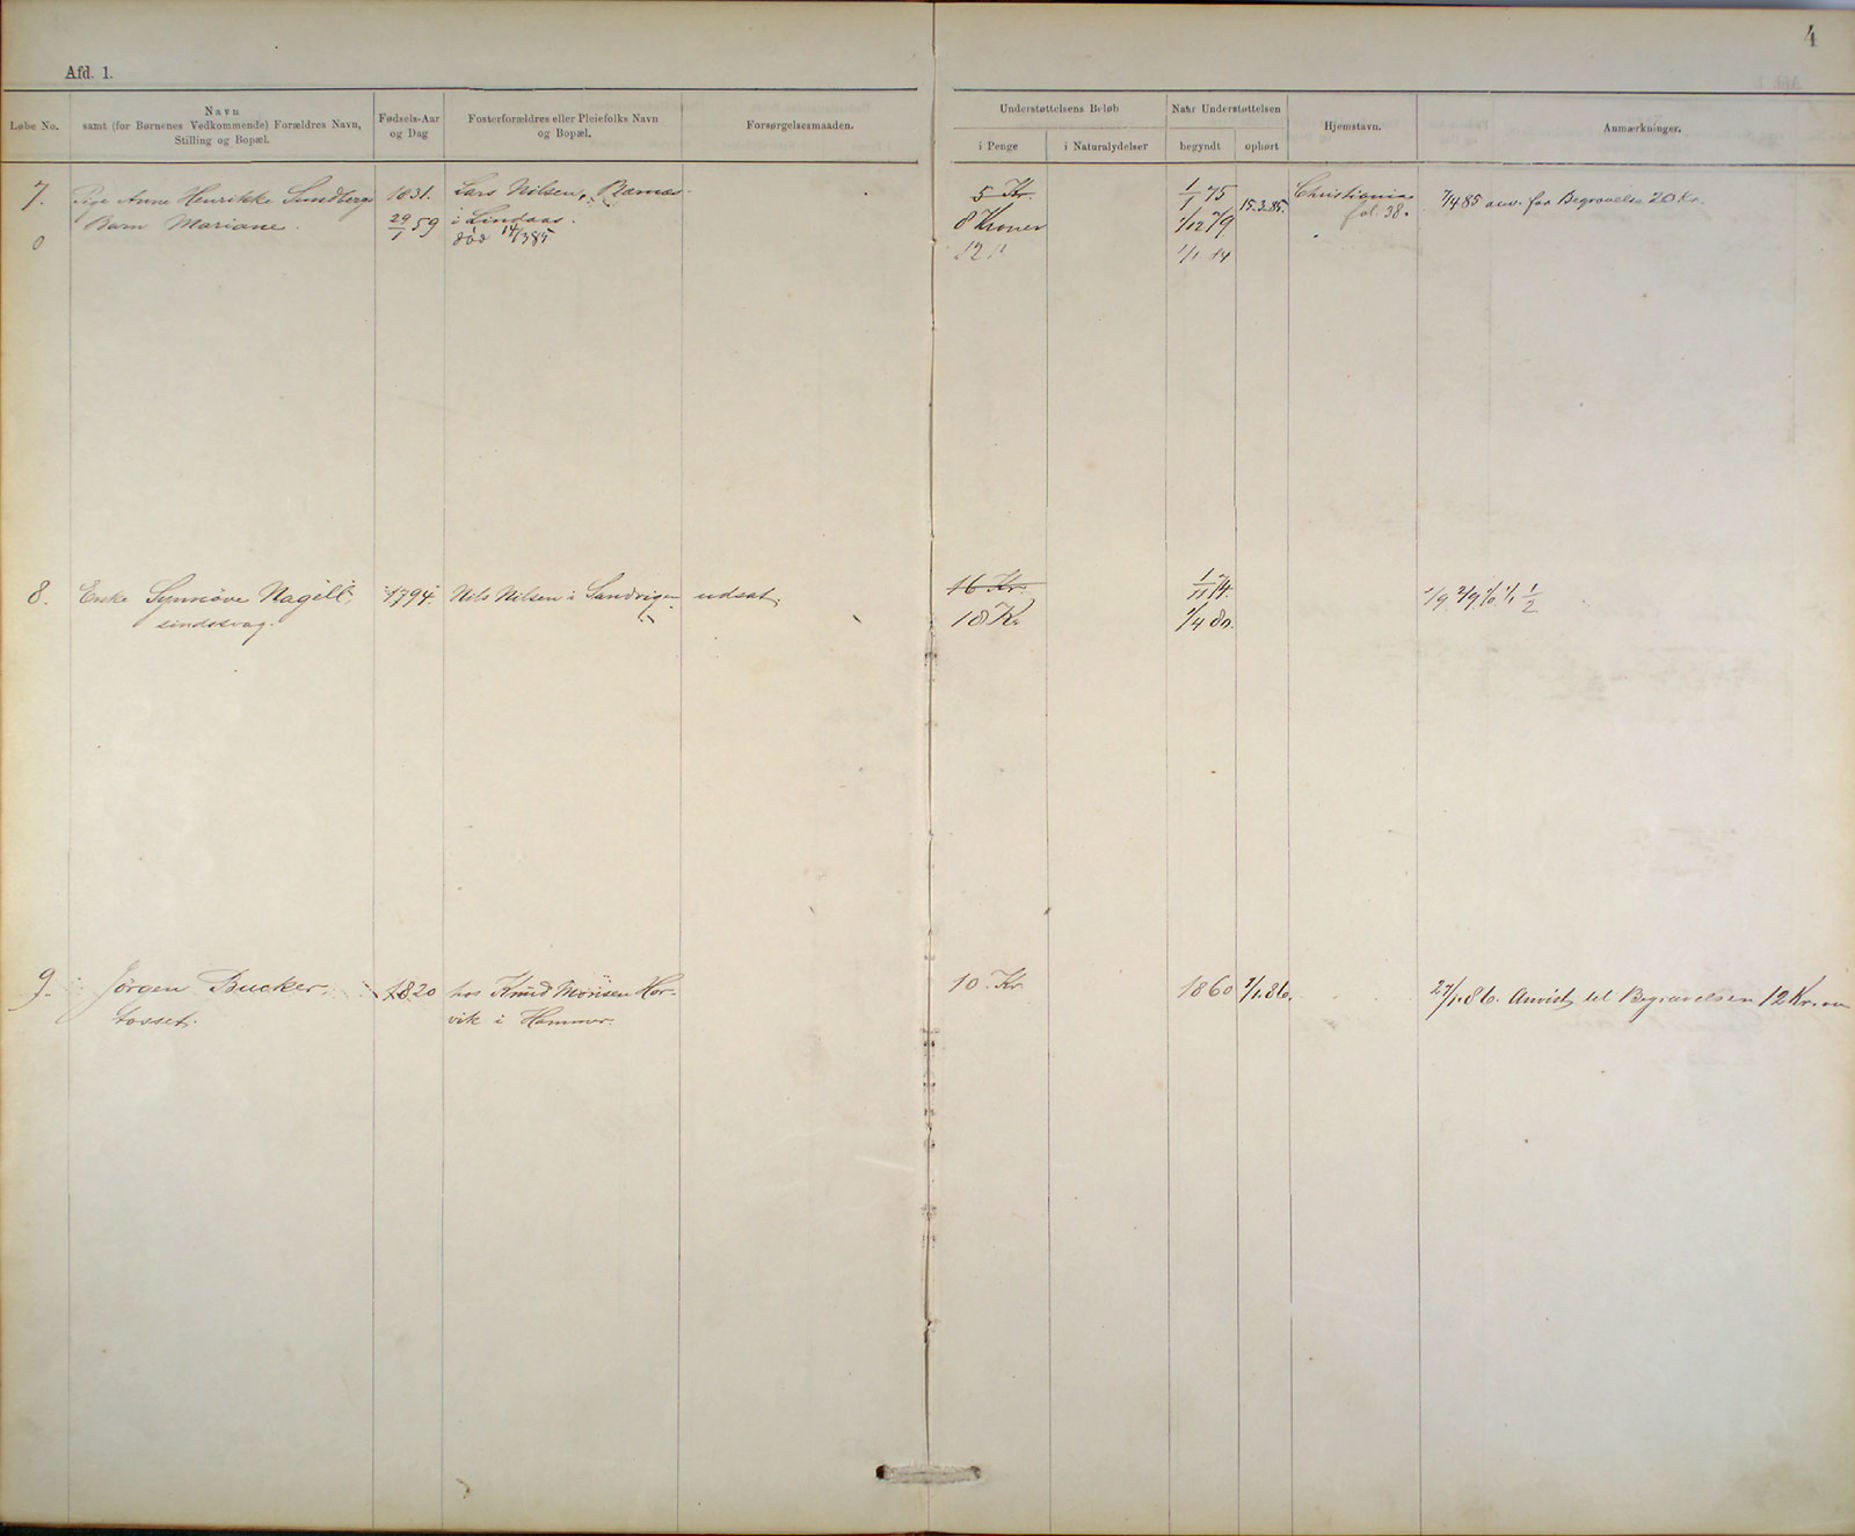 4
Afd. 1.
Løbe No.
Navn
samt (for Børnenes Vedkommende) Forældres Navn,
Stilling og Bopæl.
Fødsels-Aar
og Dag
Fosterforældres eller Pleiefolks Navn
og Bopæl.
Forsørgelsesmaaden.
Understøttelsens Beløb
i Penge
i Naturalydelser
Naar Understøttelsen
begyndt
ophørt
Hjemstavn.
Anmærkninger.
7.
Pige Anne Henrikke Sundbergs
Barn Mariane.
0
1831.
29/1 59
Lars Nilsen,
i Lindaas.
død 14/3 85
5 Kr.
8 Kroner
12 "
1/1 75
1/12 79
1/1 84
15.3.85.
Christiania
fol. 38.
7/4 85 anv. for Begravelse 20 Kr.
8.
Enke Synnöve Nagell,
sindssvag.
1794.
Nils Nilsen i Sandvigen
udsat.
16 Kr.
18 Kr
1/11 74.
1/4 80.
9.
Jörgen Bucker,
tosset.
1820
hos Knud Monsen Hor-
vik i Hammer.
10. Kr
1860
27/1.86. Anvist til Begravelsen 12 Kr.